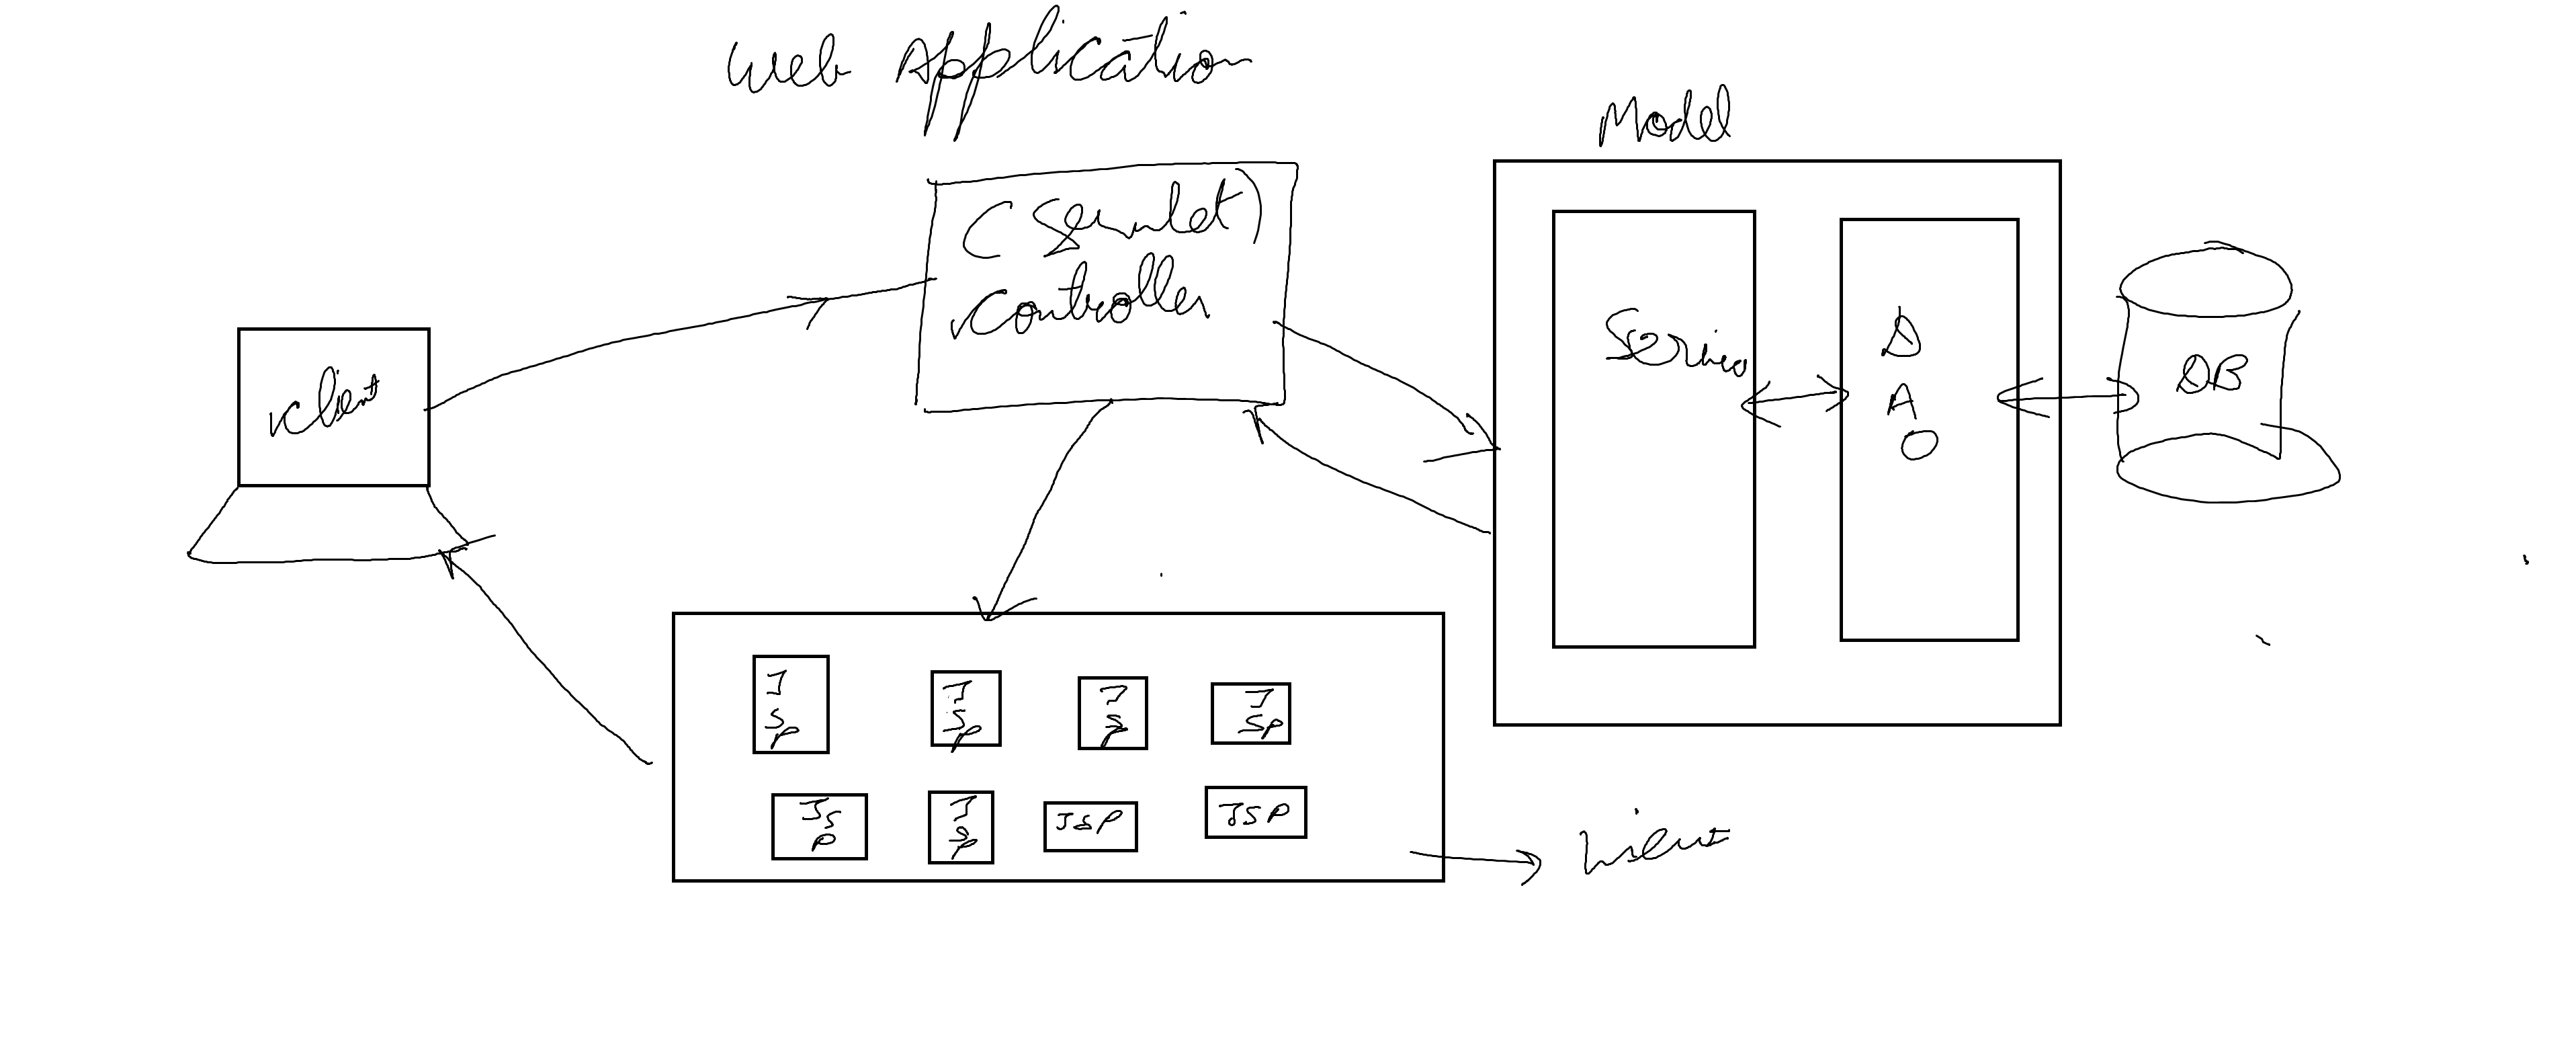 Web Application
Model
(Servlet)
Controller
Client
Service
D
A
O
DB
J
S
P
J
S
P
J
S
P
J
SP
JS
P
J
S
P
JSP
JSP
View